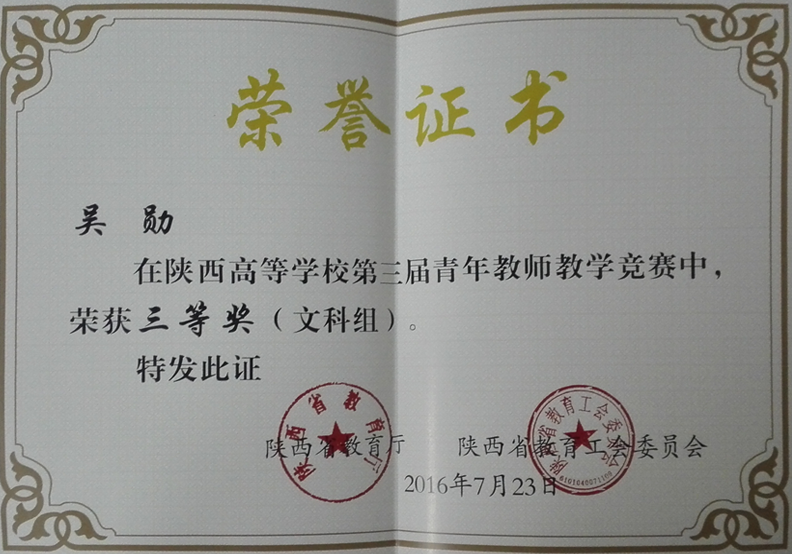 荣誉证书
吴勋
在陕西高等学校第三届青年教师教学竞赛中，
荣获三等奖（文科组）。
特发此证
陕西省教育厅 陕西省教育工会委员会
2016年7月23日
陕西省教育厅
陕西省教育工会委员会